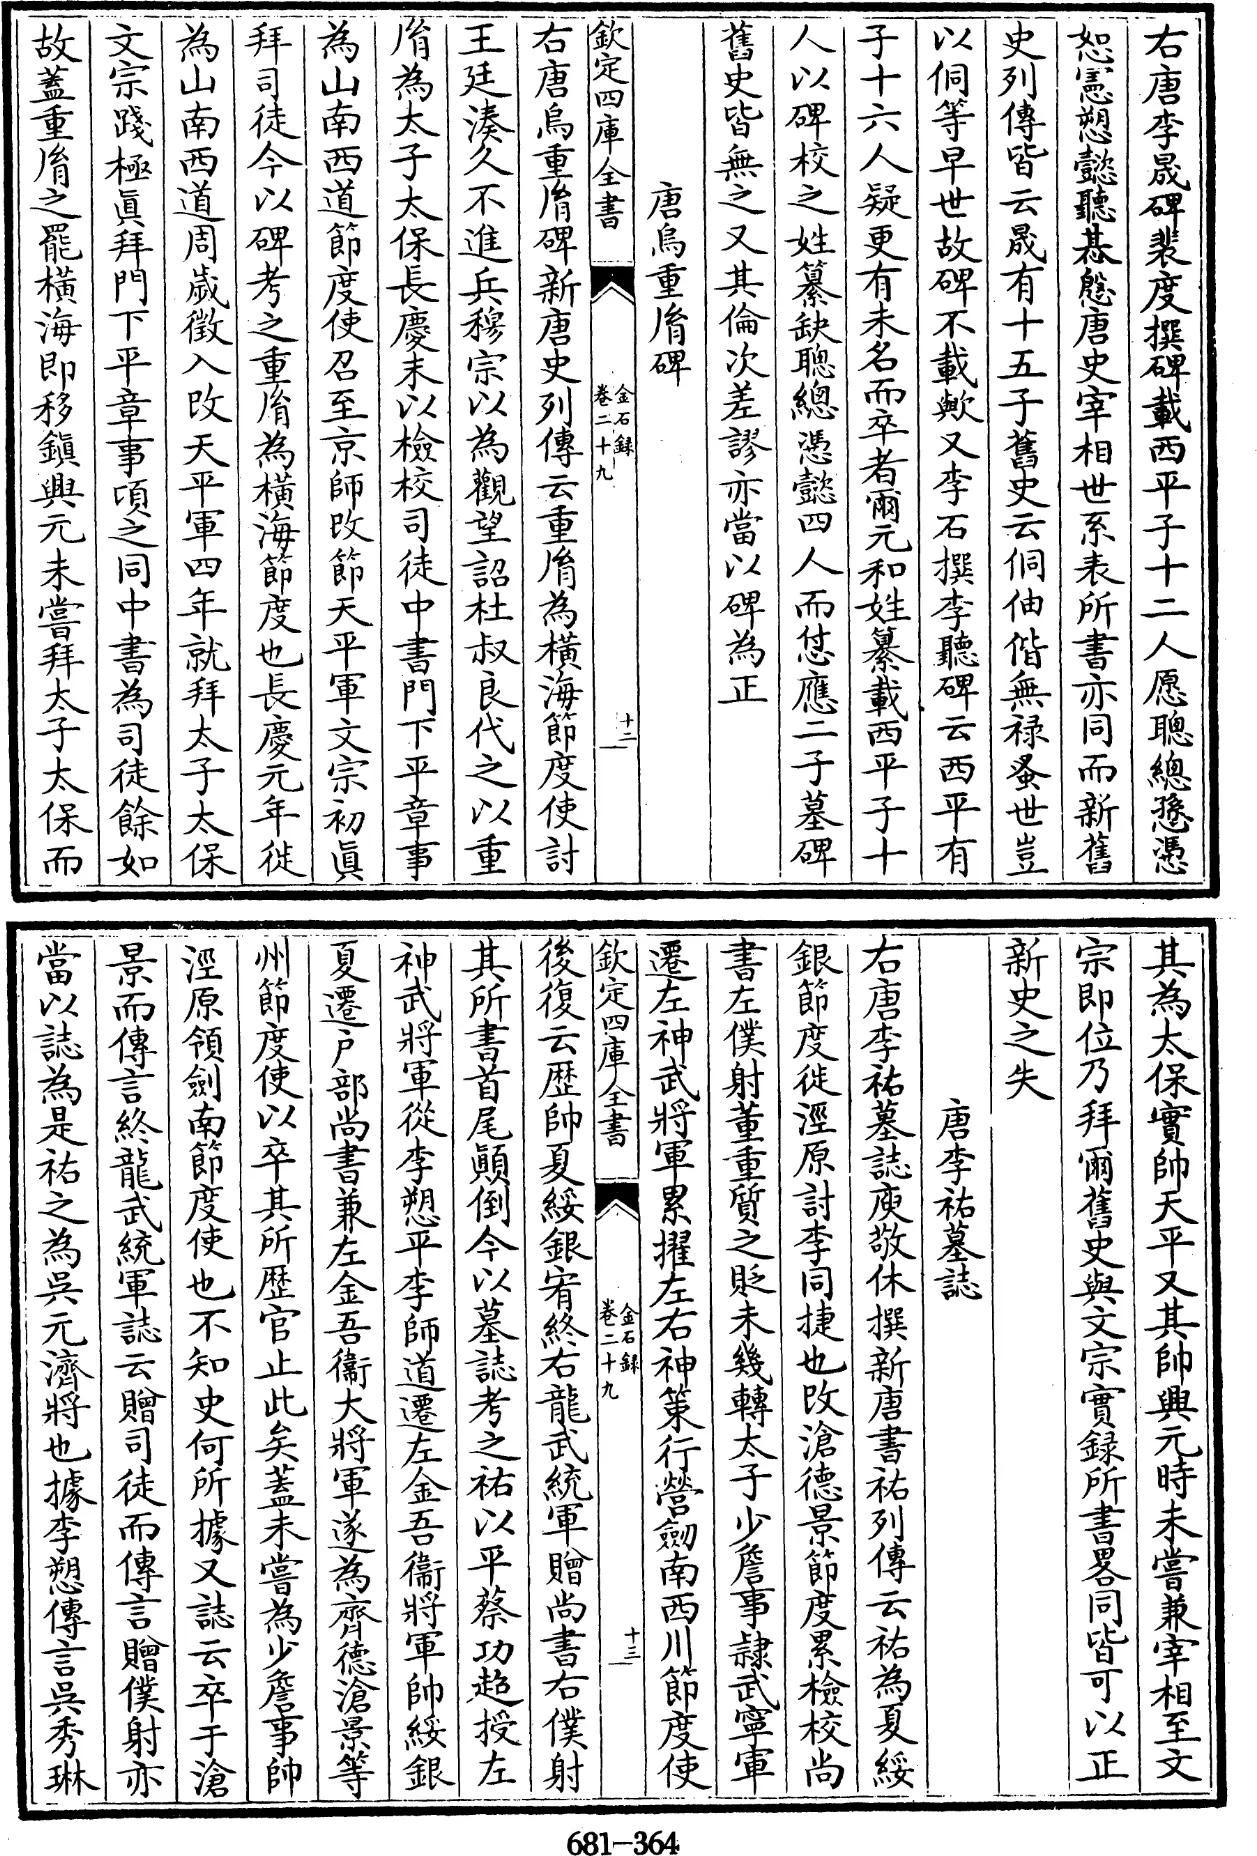 右唐李晟碑裴度撰碑載西平子十二人愿聰總愻憑
恕憲愬懿聽惎慇唐史宰相世系表所書亦同而新舊
史列傳皆云晟有十五子舊史云侗伷偕無禄蚤世豈
以侗等早世故碑不載歟又李石撰李聽碑云西平有
子十六人疑更有未名而卒者爾元和姓纂載西平子十
人以碑校之姓纂缺聰總憑懿四人而㤞應二子墓碑
舊史皆無之又其倫次差謬亦當以碑為正
唐烏重𦙍碑
欽定四庫全書
金石錄
卷二十九
十二
右唐烏重𦙍碑新唐史列傳云重𦙍為橫海節度使討
王廷湊久不進兵穆宗以為觀望詔杜叔良代之以重
𦙍為太子太保長慶末以檢校司徒中書門下平章事
為山南西道節度使召至京師改節天平軍文宗初眞
拜司徒今以碑考之重𦙍為橫海節度也長慶元年徙
為山南西道周歲徵入改天平軍四年就拜太子太保
文宗踐極眞拜門下平章事頃之同中書為司徒餘如
故蓋重𦙍之罷橫海即移鎮興元未嘗拜太子太保而
其為太保實帥天平又其帥興元時未嘗兼宰相至文
宗即位乃拜爾舊史與文宗實録所書畧同皆可以正
新史之失
唐李祐墓誌
右唐李祐墓誌庾敬休撰新唐書祐列傳云祐為夏綏
銀節度徙涇原討李同捷也改滄德景節度累檢校尚
書左僕射董重質之貶未幾轉太子少詹事隷武寧軍
遷左神武將軍累擢左右神策行營劒南西川節度使
欽定四庫全書
金石錄
卷二十九
十三
後復云歴帥夏綏銀宥終右龍武統軍贈尚書右僕射
其所書首尾顚倒今以墓誌考之祐以平蔡功超授左
神武將軍從李愬平李師道遷左金吾衞將軍帥綏銀
夏遷戶部尚書兼左金吾衞大將軍遂為齊德滄景等
州節度使以卒其所歴官止此矣蓋未嘗為少詹事帥
涇原領劍南節度使也不知史何所據又誌云卒于滄
景而傳言終龍武統軍誌云贈司徒而傳言贈僕射亦
當以誌為是祐之為吳元濟將也據李愬傳言吳秀琳
681-364